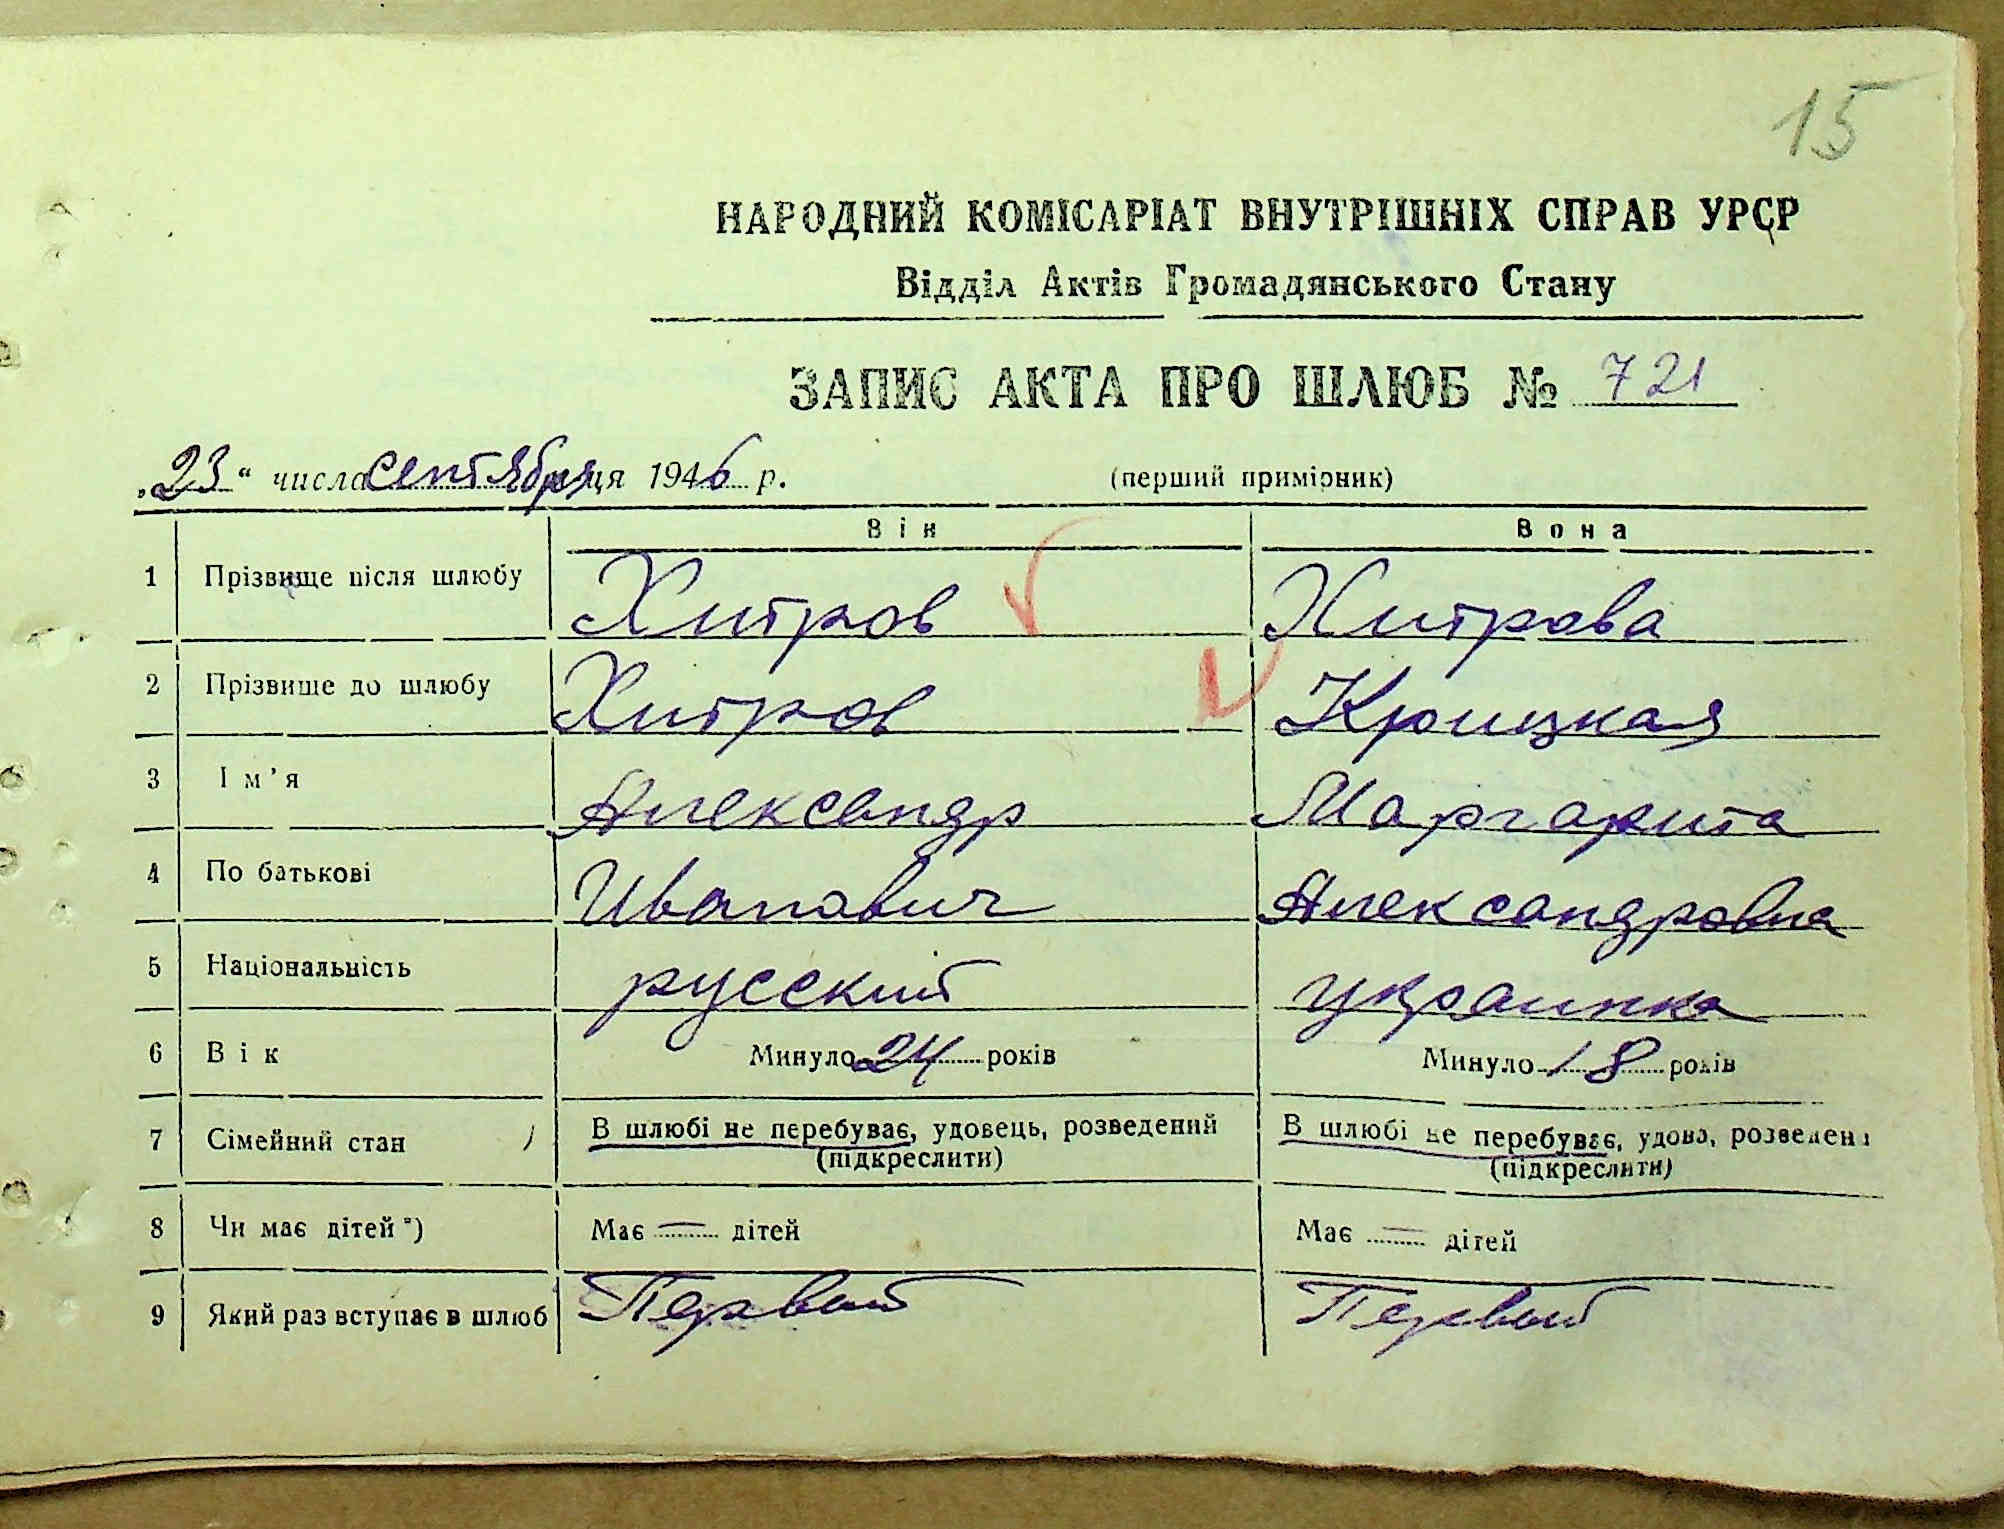 15
НАРОДНИЙ КОМІСАРІАТ ВНУТРІШНІХ СПРАВ УРСР
Відділ Актів Громадянського Стану
ЗАПИС АКТА ПРО ШЛЮБ № 721
„23“ числа сентября ця 1946 р. (перший примірник)
Він Вона
1 Прізвище після шлюбу Хитров Хитрова
2 Прізвище до шлюбу Хитров Крицкая
3 Ім’я Александр Маргарита
4 По батькові Иванович Александровна
5 Національність русский украинка
6 Вік Минуло 24 років Минуло 18 років
7 Сімейний стан ) В шлюбі не перебуває, удовець, розведений В шлюбі не перебуває, удова, розведена
(підкреслити) (підкреслити)
8 Чи має дітей*) Має — дітей Має — дітей
9 Який раз вступає в шлюб Первый Первый